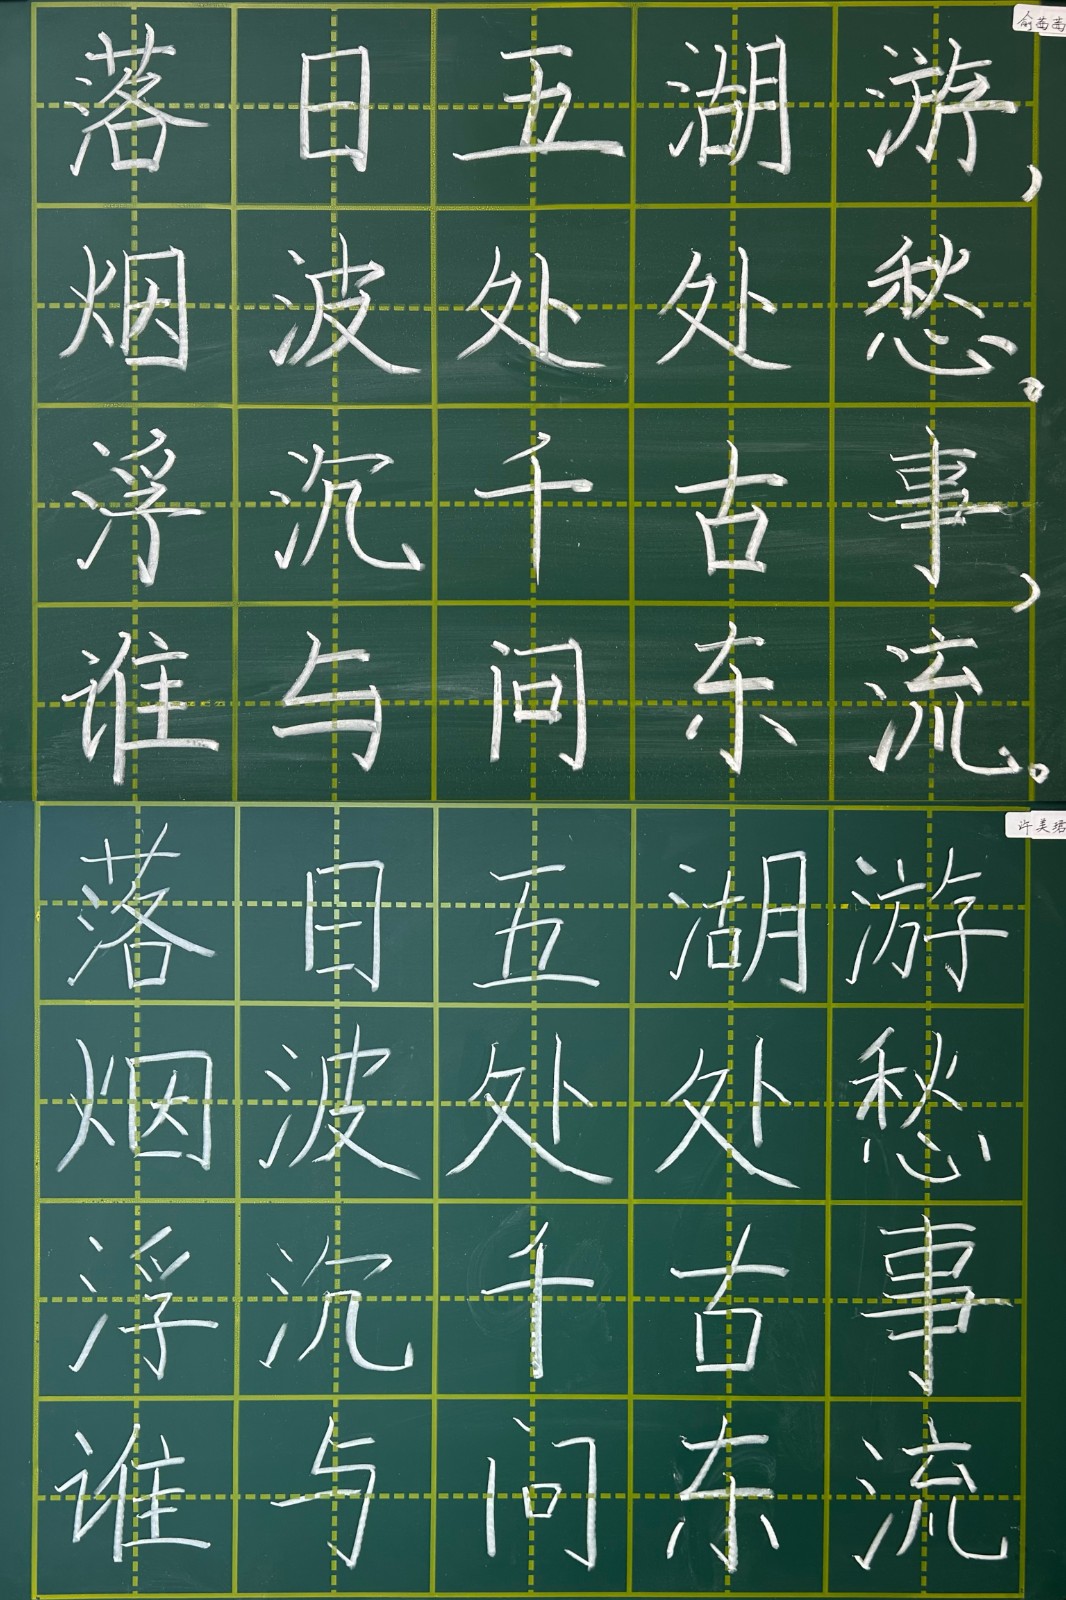 俞茜茜
落日五湖游，
烟波处处愁。
浮沉千古事，
谁与问东流。
许美珺
落日五湖游
烟波处处愁
浮沉千古事
谁与问东流